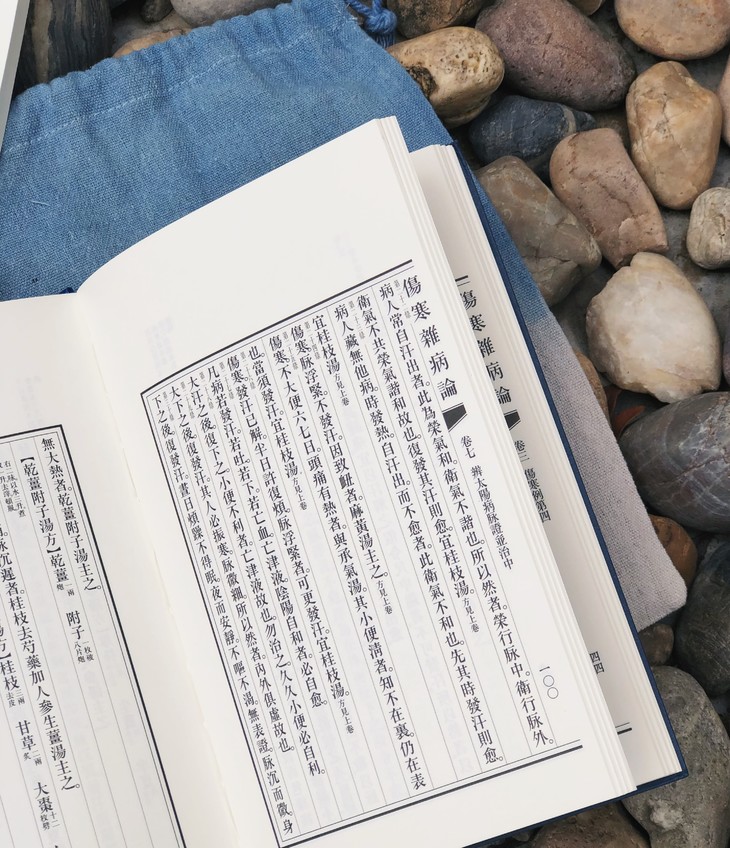 傷寒雜病論 卷三 傷寒例第四 四四
傷寒雜病論 卷七 辨太陽病脉證並治中 一〇〇
病人常自汗出者。此為榮氣和。衛氣不諧也。所以然者。榮行脉中。衛行脉外。
衛氣不共榮氣諧和故也。復發其汗則愈。宜桂枝湯。方見上卷
病人藏無他病。時發熱。自汗出。而不愈者。此衛氣不和也。先其時發汗則愈。
宜桂枝湯。方見上卷
傷寒脉浮緊。不發汗。因致衄者。麻黃湯主之。方見上卷
傷寒不大便六七日。頭痛有熱者。與承氣湯。其小便淸者。知不在裏。仍在表
也。當須發汗。宜桂枝湯。方見上卷
傷寒。發汗已解。半日許復煩。脉浮緊者。可更發汗。宜桂枝湯。方見上卷
凡病。若發汗。若吐。若下。若亡血。亡津液。陰陽自和者。必自愈。
大汗之後。復下之。小便不利者。亡津液故也。勿治之。久久小便必自利。
大下之後。復發汗。其人必振寒。脉微細。所以然者。內外俱虛故也。
下之後。復發汗。晝日煩燥不得眠。夜而安靜。不嘔不渴。無表證。脉沉而微。身
無大熱者。乾薑附子湯主之。
【乾薑附子湯方】乾薑一兩 附子一枚
脉沉遲者。桂枝去芍藥加人參生薑湯主之。
方】桂枝三兩去皮 甘草二兩炙 大棗十二枚擘